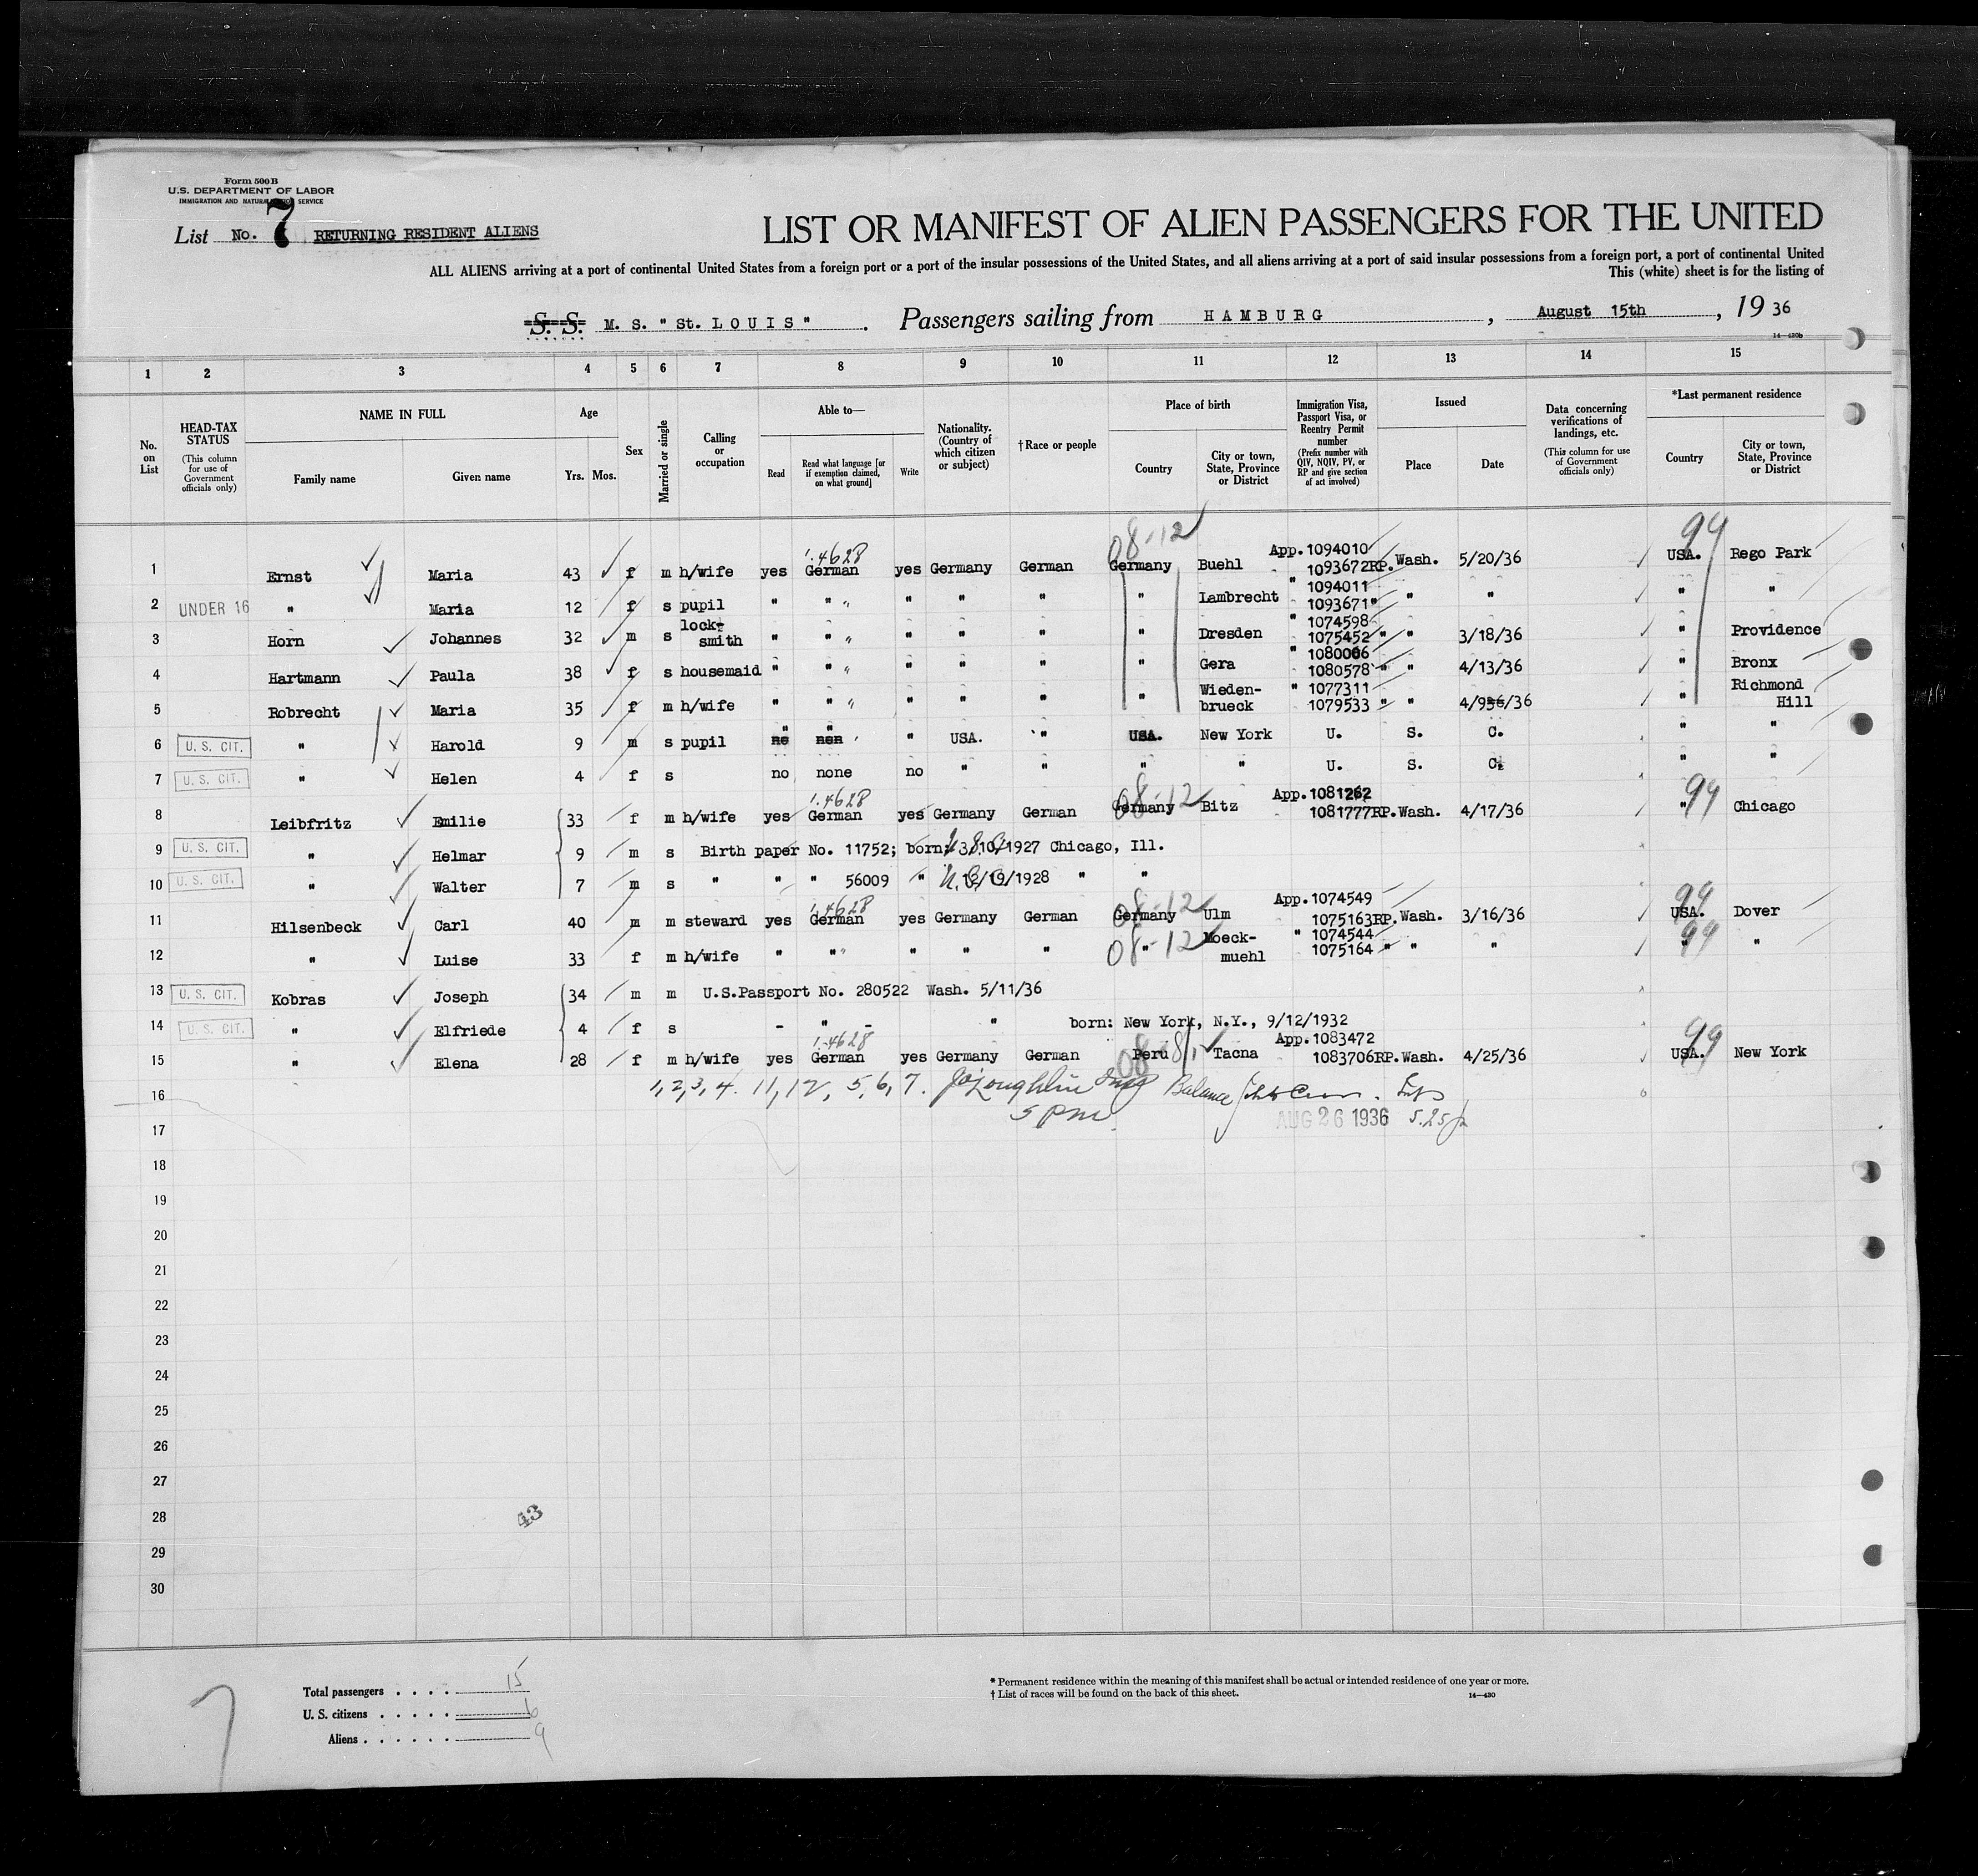 Form 500 B
U.S. DEPARTMENT OF LABOR
IMMIGRATION AND NATURALIZATION SERVICE
List No. 7 RETURNING RESIDENT ALIENS
LIST OR MANIFEST OF ALIEN PASSENGERS FOR THE UNITED
ALL ALIENS arriving at a port of continental United States from a foreign port or a port of the insular possessions of the United States, and all aliens arriving at a port of said insular possessions from a foreign port, a port of continental United
This (white) sheet is for the listing of
S. S. M. S. " St. LOUIS " . Passengers sailing from HAMBURG , August 15th , 19 36
14—430b
1 2 3 4 5 6 7 8 9 10 11 12 13 14 15
No. on List
HEAD-TAX STATUS (This column for use of Government officials only)
NAME IN FULL Family name Given name
Age Yrs. Mos.
Sex
Married or single
Calling or occupation
Able to— Read Read what language [or if exemption claimed, on what ground] Write
Nationality. (Country of which citizen or subject)
† Race or people
Place of birth Country City or town, State, Province or District
Immigration Visa, Passport Visa, or Reentry Permit number (Prefix number with QIV, NQIV, PV, or RP and give section of act involved)
Issued Place Date
Data concerning verifications of landings, etc. (This column for use of Government officials only)
*Last permanent residence Country City or town, State, Province or District
1.4628 08-12 App. 1094010 99
1 Ernst Maria 43 f m h/wife yes German yes Germany German Germany Buehl 1093672RP. Wash. 5/20/36 USA. Rego Park
" 1094011
2 UNDER 16 " Maria 12 f s pupil " " " " " " Lambrecht 1093671" " " " "
lock- " 1074598
3 Horn Johannes 32 m s smith " " " " " " Dresden 1075452 " " 3/18/36 " Providence
" 1080006
4 Hartmann Paula 38 f s housemaid " " " " " " Gera 1080578 " " 4/13/36 " Bronx
Wieden- " 1077311 Richmond
5 Robrecht Maria 35 f m h/wife " " " " " " brueck 1079533 " " 4/936/36 " Hill
" "
6 U. S. CIT. " Harold 9 m s pupil no non " USA. " USA. New York U. S. C. " "
7 U. S. CIT. " Helen 4 f s no none no " " " " U. S. C. " "
1.4628 08-12 App. 1081262 99
8 Leibfritz Emilie 33 f m h/wife yes German yes Germany German Germany Bitz 1081777RP. Wash. 4/17/36 " Chicago
9 U. S. CIT. " Helmar 9 m s Birth paper No. 11752; born: 3/10/1927 Chicago, Ill.
10 U. S. CIT. " Walter 7 m s " " " 56009 " 12/19/1928 " "
1.4628 08-12 App. 1074549 99
11 Hilsenbeck Carl 40 m m steward yes German yes Germany German Germany Ulm 1075163RP. Wash. 3/16/36 USA. Dover
08-12 Moeck- " 1074544 99
12 " Luise 33 f m h/wife " " " " " " muehl 1075164 " " " " "
13 U. S. CIT. Kobras Joseph 34 m m U.S.Passport No. 280522 Wash. 5/11/36
14 U. S. CIT. " Elfriede 4 f s - " - " born: New York, N.Y., 9/12/1932
1.4628 App. 1083472 99
15 " Elena 28 f m h/wife yes German yes Germany German Peru Tacna 1083706RP. Wash. 4/25/36 USA. New York
16 1, 2, 3, 4. 11, 12, 5, 6, 7. Balance
5 PM
17 AUG 26 1936 5.25 p
18
19
20
21
22
23
24
25
26
27
28 43
29
30
7
Total passengers . . . . 15
U. S. citizens . . . . . 6
Aliens . . . . . . 9
* Permanent residence within the meaning of this manifest shall be actual or intended residence of one year or more.
† List of races will be found on the back of this sheet.
14—430